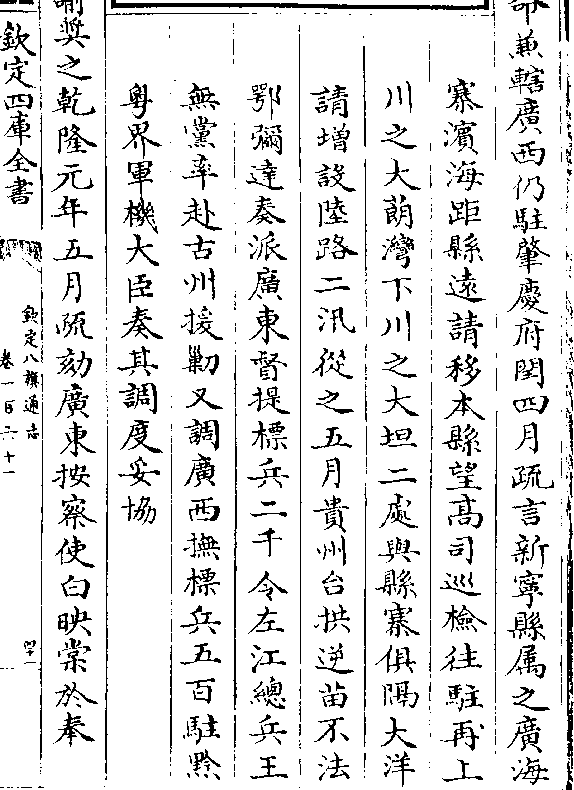 命兼轄廣西仍駐肇慶府閏四月疏言新寧縣属之廣海
寨濱海距縣遠請移本縣望髙司巡檢往駐再上
川之大蓢灣下川之大坦二處與縣寨俱隔大洋
請增設陸路二汛從之五月貴州台拱逆苗不法
鄂彌達奏派廣東督提標兵二千令左江總兵王
無黨率赴古州援勦又調廣西撫標兵五百駐黔
粤界軍機大臣奏其調度妥協
諭奨之乾隆元年五月疏劾廣東按察使白映棠於奉
欽定四庫全書
欽定八旗通志
卷一百六十一